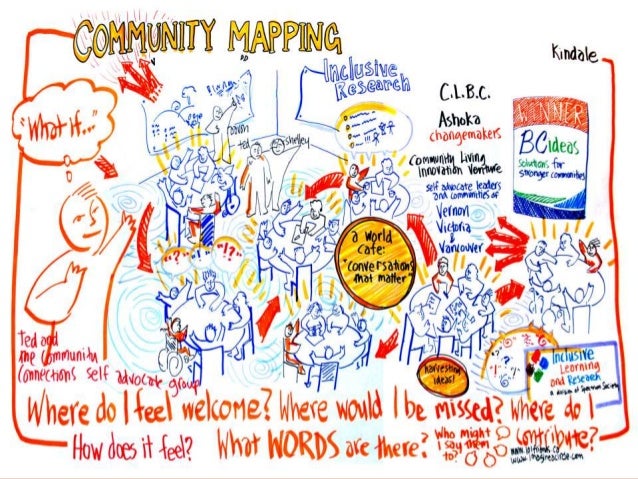 COMMUNITY MAPPING
Kindale
Inclusive
Research
"What if..."
ted
shelley
C.L.B.C.
Ashoka
changemakers
Community Living
Innovation Venture
self advocate leaders
and communities of
Vernon
Victoria
&
Vancouver
WINNER
BCideas
Solutions for
stronger communities
a World
Cafe:
"Conversations
that matter"
"?"
"!?"
harvesting
ideas!
Ted and
the Community
Connections self advocate group
Inclusive
Learning
and Research
a division of Spectrum Society
Where do I feel welcome? Where would I be missed? Where do I
contribute?
How does it feel? What WORDS are there? Who might
I say them
to?